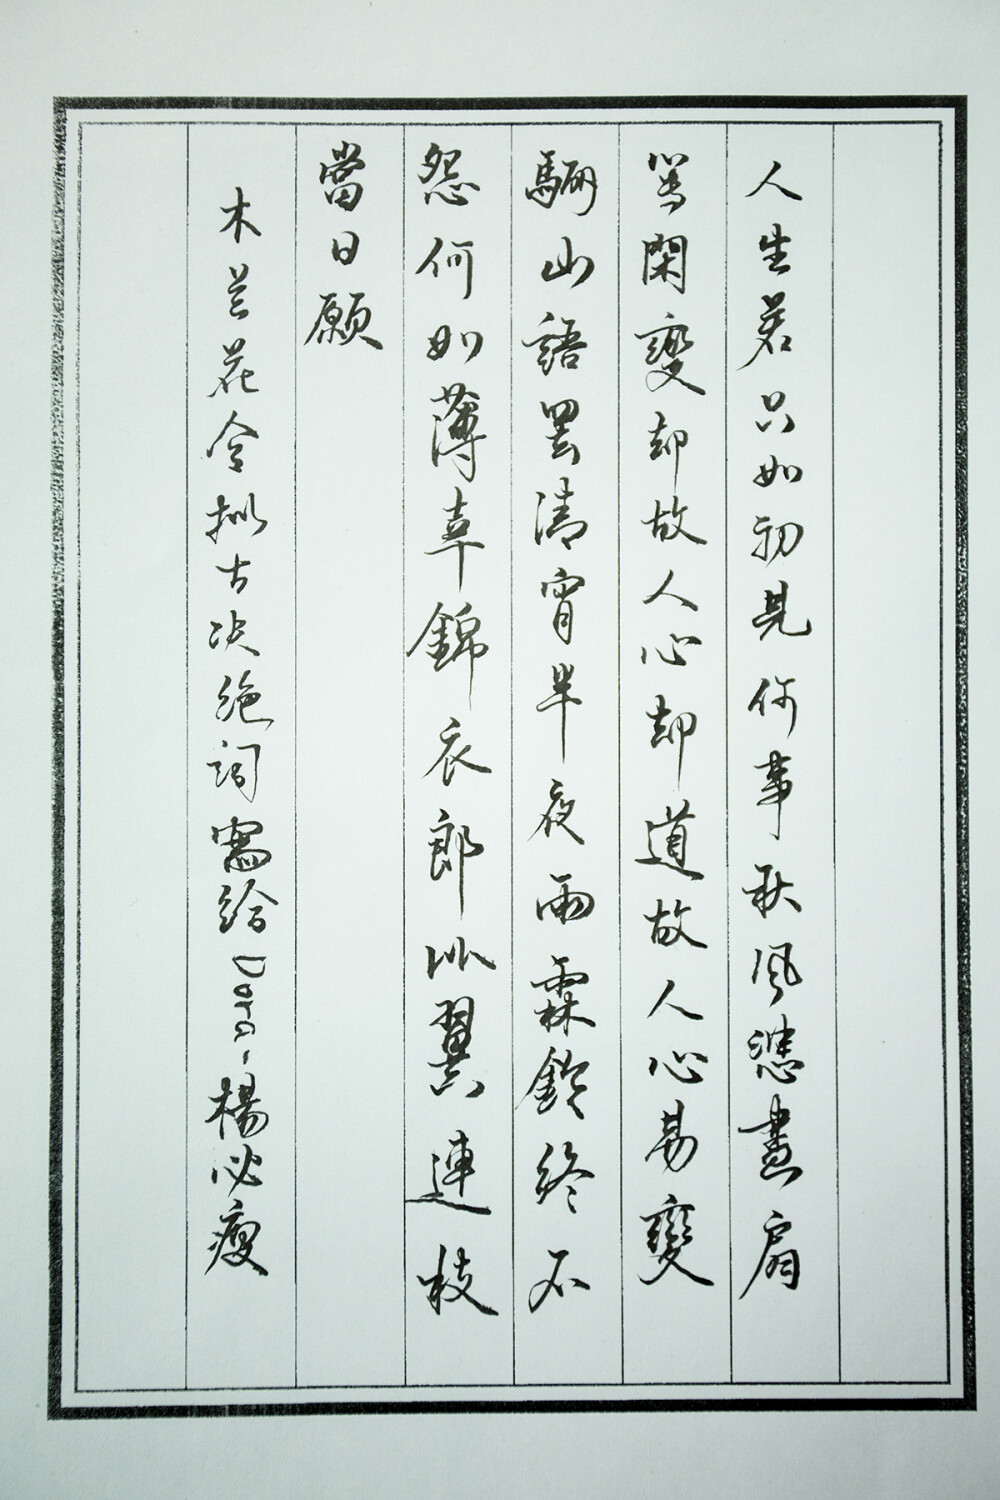 人生若只如初見何事秋風悲畫扇
等閑變却故人心却道故人心易變
驪山語罢清宵半夜雨霖鈴終不
怨何如薄幸錦衣郎比翼連枝
當日願
木兰花令拟古决绝詞寫給Dora楊必瘦